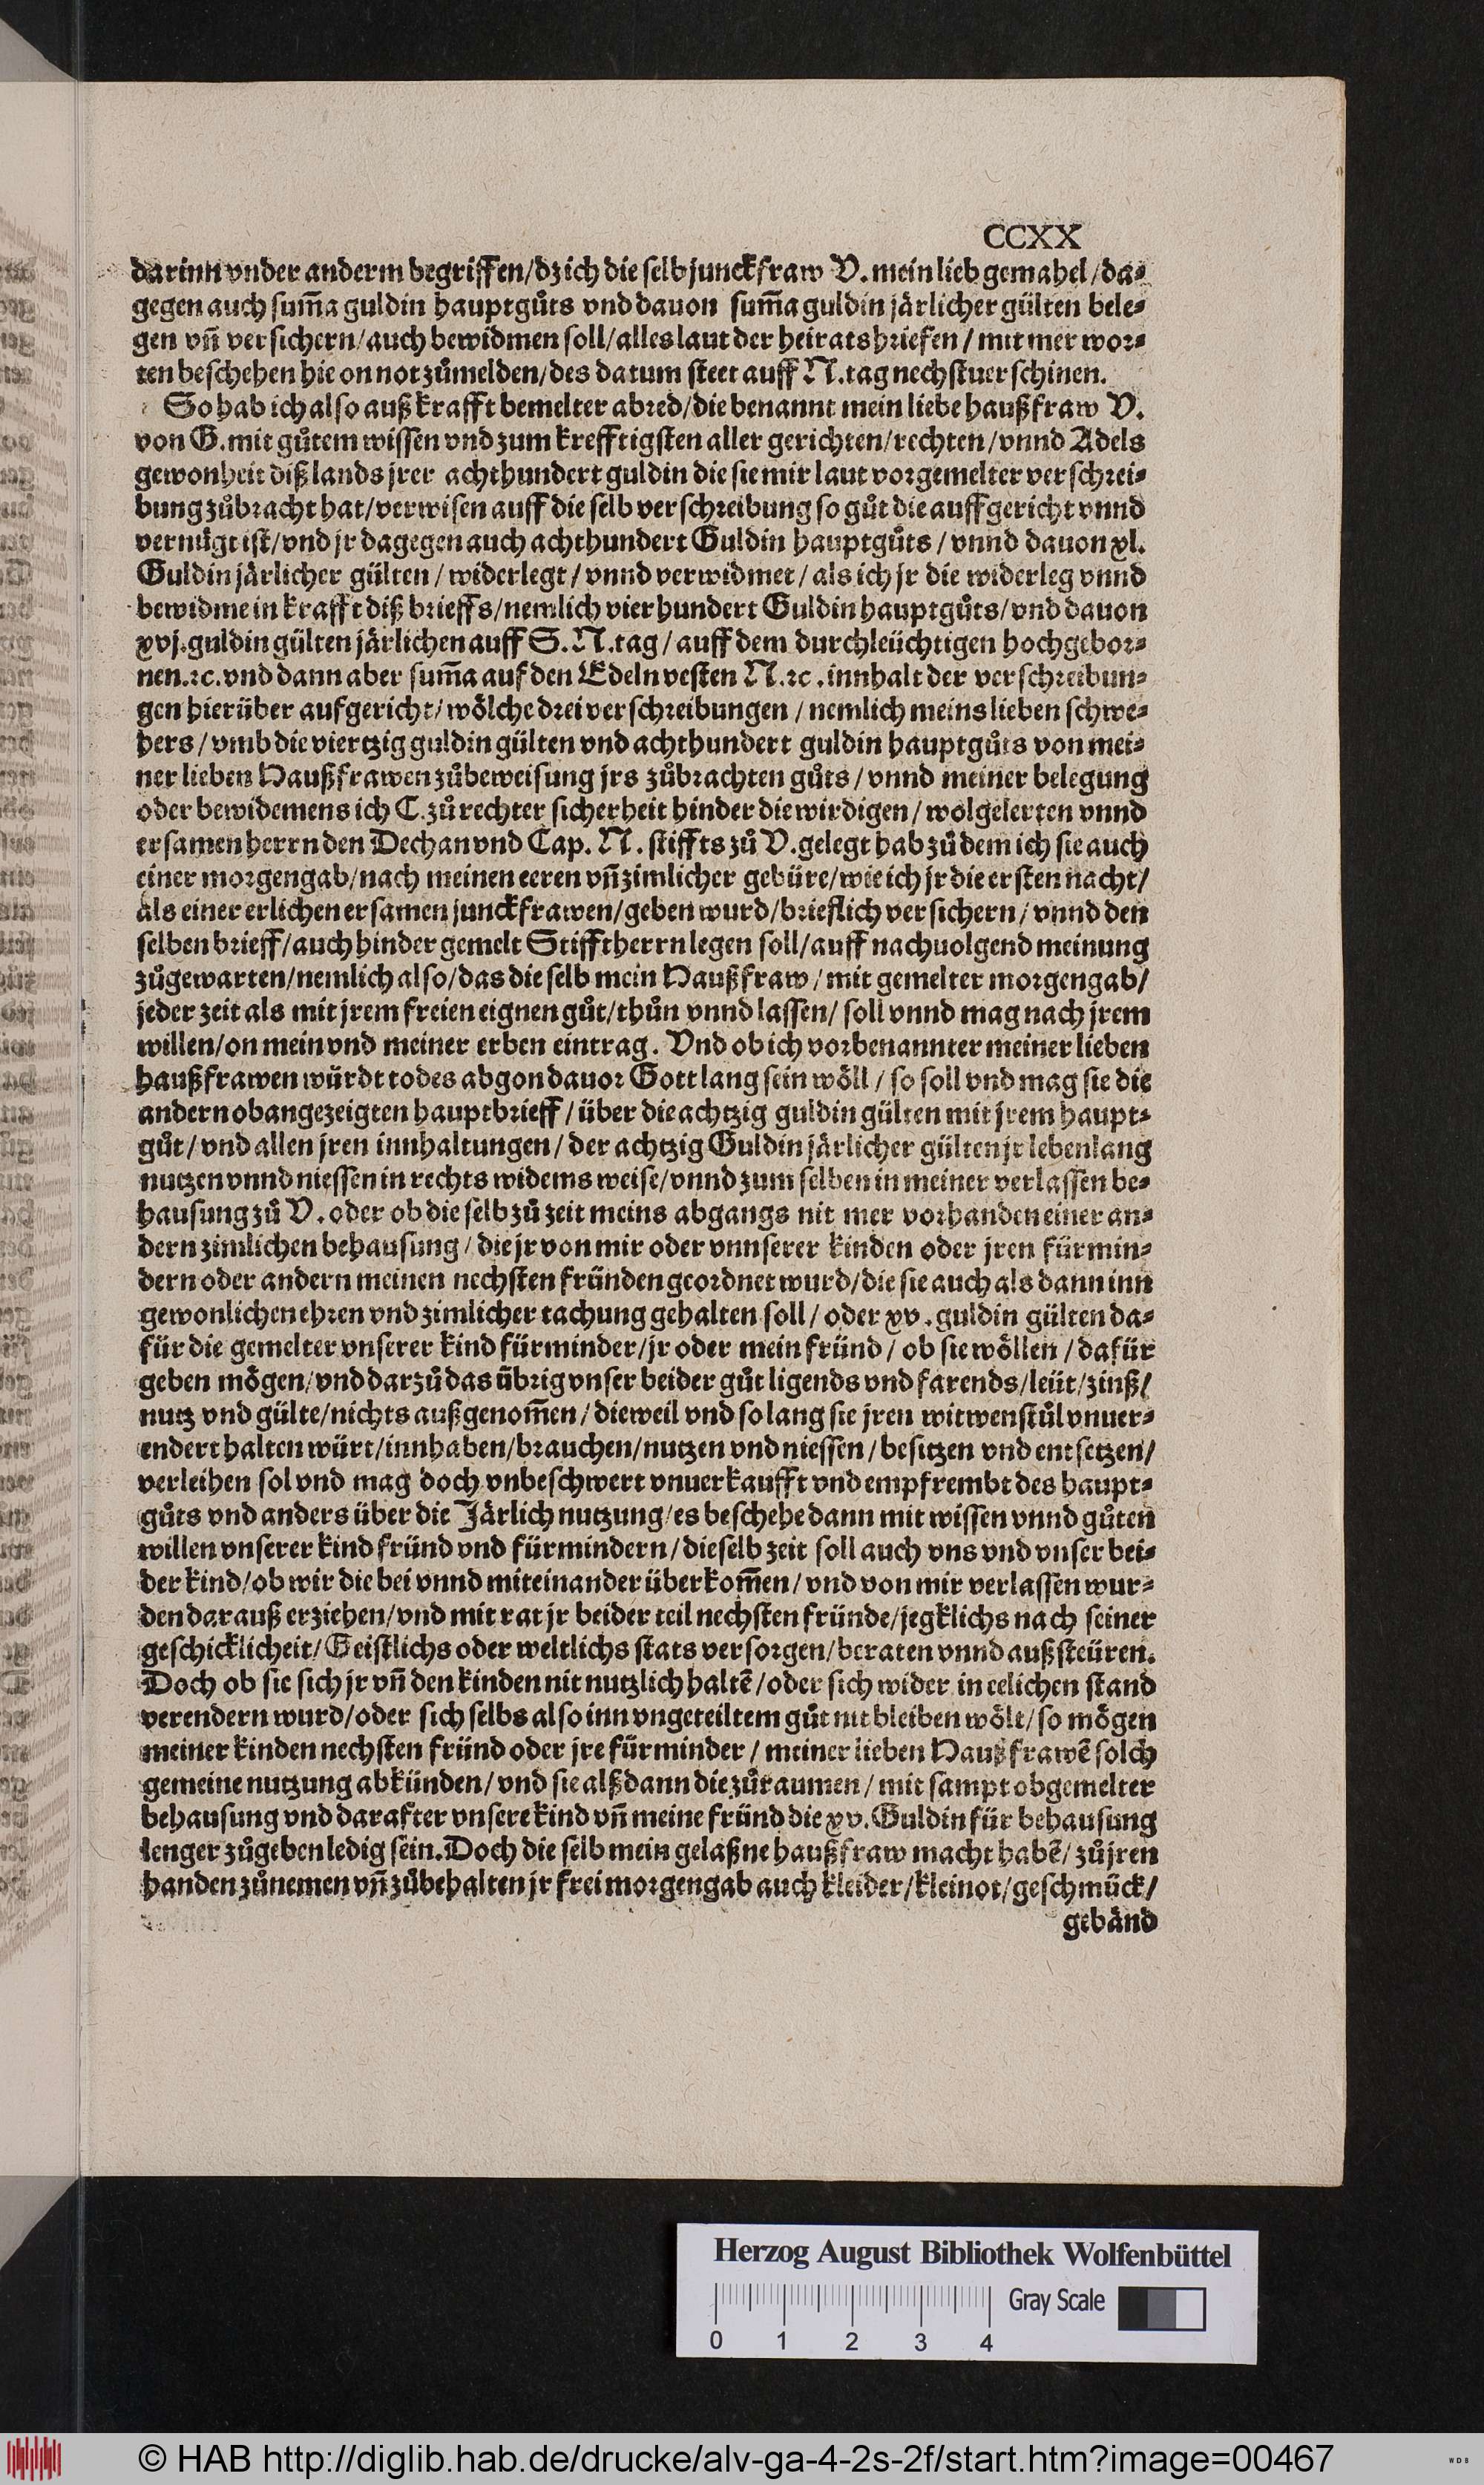 CCXX
darinn vnder anderm begriffen/dz ich die selb junckfraw V. mein lieb gemahel/da-
gegen auch sum̃a guldin hauptgůts vnd dauon sum̃a guldin järlicher gülten bele-
gen vñ versichern/auch bewidmen soll/alles laut der heirats briefen/mit mer wor-
ten beschehen hie on not zůmelden/des datum steet auff N. tag nechstuerschinen.
So hab ich also auß krafft bemelter abred/die benannt mein liebe haußfraw V.
von G. mit gůtem wissen vnd zum krefftigsten aller gerichten/rechten/vnnd Adels
gewonheit diß lands jrer achthundert guldin die sie mir laut vorgemelter verschrei-
bung zůbracht hat/verwisen auff die selb verschreibung so gůt die auffgericht vnnd
vernůgt ist/vnd jr dagegen auch achthundert Guldin hauptgůts/vnnd dauon xl.
Guldin järlicher gülten/widerlegt/vnnd verwidmet/als ich jr die widerleg vnnd
bewidme in krafft diß brieffs/nemlich vierhundert Guldin hauptgůts/vnd dauon
xvj. guldin gülten järlichen auff S. N. tag/auff dem durchleüchtigen hochgebor-
nen. ꝛc. vnd dann aber sum̃a auf den Edeln vesten N. ꝛc. innhalt der verschreibun-
gen hierüber aufgericht/wölche drei verschreibungen/nemlich meins lieben schwe-
hers/vmb die viertzig guldin gülten vnd achthundert guldin hauptgůts von mei-
ner lieben Haußfrawen zůbeweisung jrs zůbrachten gůts/vnnd meiner belegung
oder bewidemens ich C. zů rechter sicherheit hinder die wirdigen/wolgelerten vnnd
ersamen herrn den Dechan vnd Cap. N. stiffts zů V. gelegt hab zů dem ich sie auch
einer morgengab/nach meinen eeren vñ zimlicher gebüre/wie ich jr die ersten nacht/
als einer erlichen ersamen junckfrawen/geben wurd/brieflich versichern/vnnd den
selben brieff/auch hinder gemelt Stifftherrn legen soll/auff nachuolgend meinung
zůgewarten/nemlich also/das die selb mein Haußfraw/mit gemelter morgengab/
jeder zeit als mit jrem freien eignen gůt/thůn vnnd lassen/soll vnnd mag nach jrem
willen/on mein vnd meiner erben eintrag. Vnd ob ich vorbenannter meiner lieben
haußfrawen würdt todes abgon dauor Gott lang sein wöll/so soll vnd mag sie die
andern obangezeigten hauptbrieff/über die achtzig guldin gülten mit jrem haupt-
gůt/vnd allen jren innhaltungen/der achtzig Guldin järlicher gülten jr lebenlang
nutzen vnnd niessen in rechts widems weise/vnnd zum selben in meiner verlassen be-
hausung zů V. oder ob die selb zů zeit meins abgangs nit mer vorhanden einer an-
dern zimlichen behausung/die jr von mir oder vnnserer kinden oder jren fürmin-
dern oder andern meinen nechsten fründen geordnet wurd/die sie auch als dann inn
gewonlichen ehren vnd zimlicher tachung gehalten soll/oder xv. guldin gülten da-
für die gemelter vnserer kind fürminder/jr oder mein fründ/ob sie wöllen/dafür
geben mögen/vnd darzů das übrig vnser beider gůt ligends vnd farends/leüt/zinß/
nutz vnd gülte/nichts außgenom̃en/dieweil vnd so lang sie jren witwenstůl vnuer-
endert halten würt/innhaben/brauchen/nutzen vnd niessen/besitzen vnd entsetzen/
verleihen sol vnd mag doch vnbeschwert vnuerkaufft vnd empfrembt des haupt-
gůts vnd anders über die Järlich nutzung/es beschehe dann mit wissen vnnd gůten
willen vnserer kind fründ vnd fürmindern/dieselb zeit soll auch vns vnd vnser bei-
der kind/ob wir die bei vnnd miteinander überkom̃en/vnd von mir verlassen wur-
den darauß erziehen/vnd mit rat jr beider teil nechsten fründe/jegklichs nach seiner
geschicklicheit/Geistlichs oder weltlichs stats versorgen/beraten vnnd außsteüren.
Doch ob sie sich jr vñ den kinden nit nutzlich haltẽ/oder sich wider in eelichen stand
verendern wurd/oder sich selbs also inn vngeteiltem gůt nit bleiben wölt/so mögen
meiner kinden nechsten fründ oder jre fürminder/meiner lieben Haußfrawẽ solch
gemeine nutzung abkünden/vnd sie alßdann die zůraumen/mit sampt obgemelter
behausung vnd darafter vnsere kind vñ meine fründ die xv. Guldin für behausung
lenger zůgeben ledig sein. Doch die selb mein gelaßne haußfraw macht habẽ/zů jren
handen zůnemen vñ zůbehalten jr frei morgengab auch kleider/kleinot/geschmück/
gebänd
Herzog August Bibliothek Wolfenbüttel
Gray Scale
0 1 2 3 4
© HAB http://diglib.hab.de/drucke/alv-ga-4-2s-2f/start.htm?image=00467
WDB